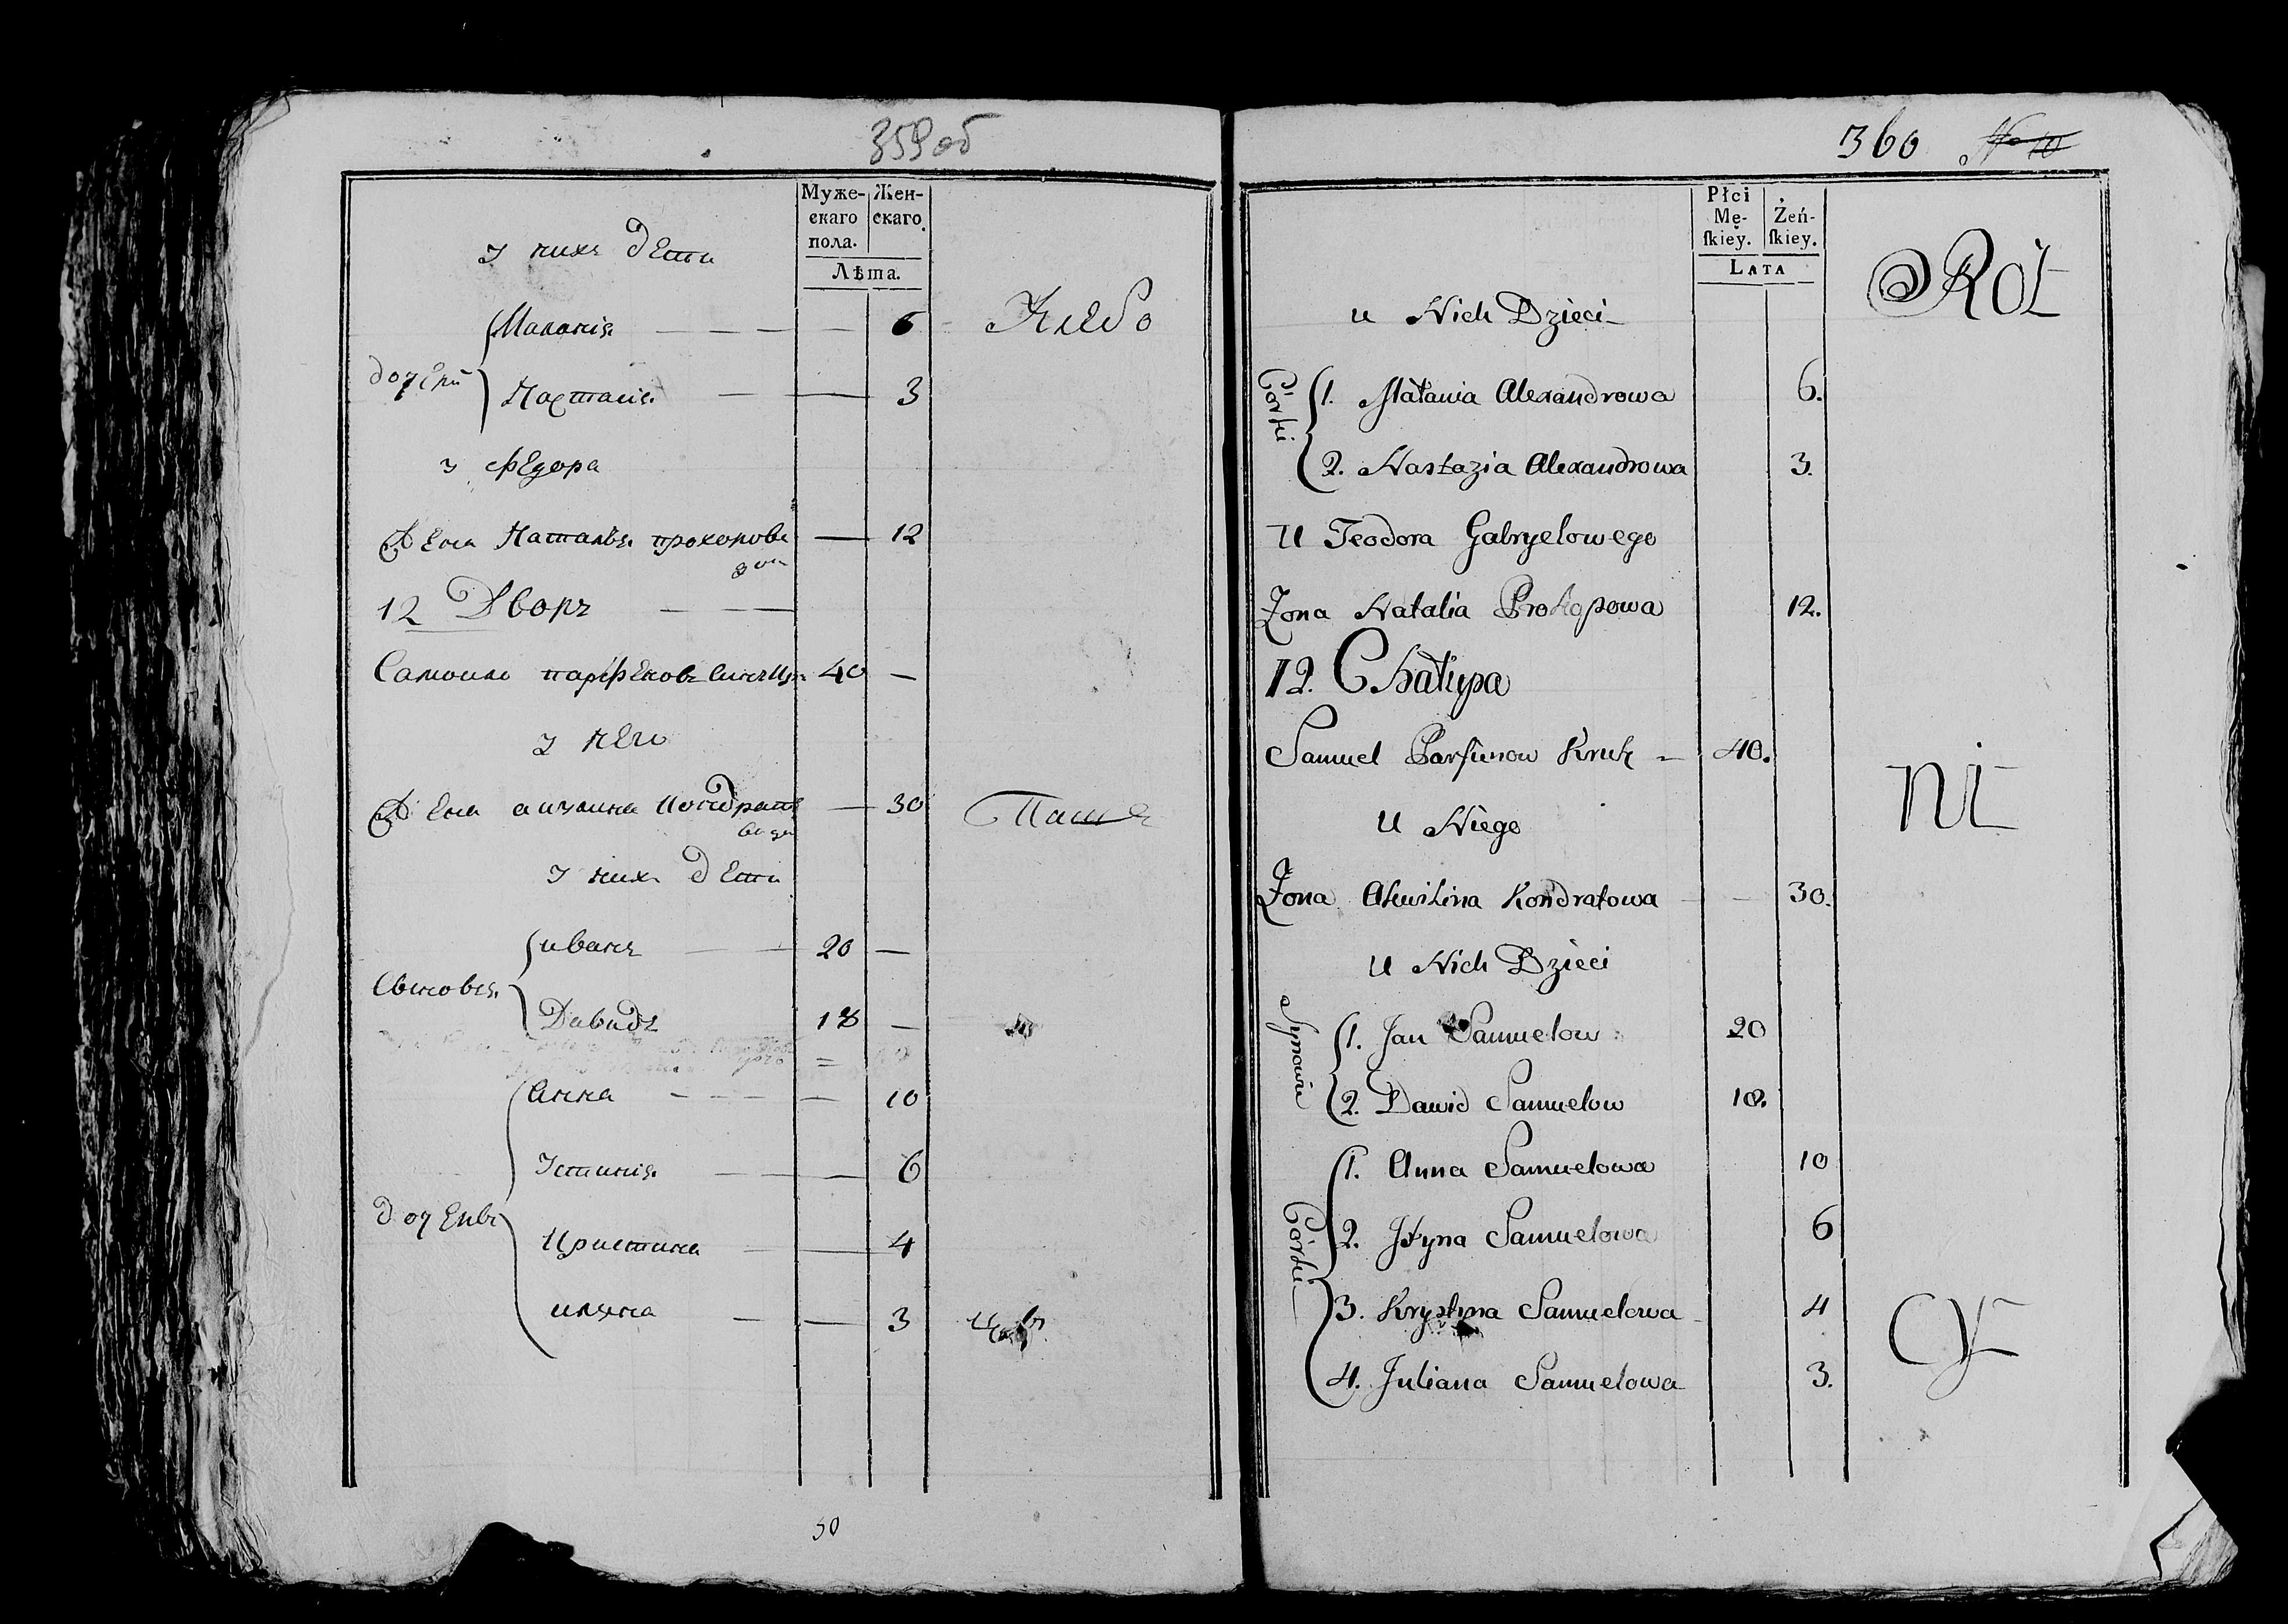 359 об
Муже-
скаго
пола.
Жен-
скаго.
Лѣта.
у нихъ дети
Маланія — — — — 6
Хлебо
дочери
Настасія — — 3
у Федора
Жена Наталья прокопова — 12
12 Дворъ — —
Самойло парфеновъ 40 —
у него
Жена акулина Кондрать — 30
Паш
у нихъ дети
иванъ — 20 —
Сыновья
Давидъ 18 —
Анна — — — — 10
Устинія — — 6
дочери
Кристина — — 4
иляна — — 3
50
360 No 10
Płci
Mę-
skiey.
Żeń-
skiey.
LATA
ROŁ
u Nich Dzieci
Córki
1. Małania Alexandrowa 6.
2. Nastazia Alexandrowa 3.
U Teodora Gabryelowego
Żona Natalia Prokopowa 12.
12. Chałupa
Samuel Parfunow Kruk 40.
U Niego
NI
Żona Akwilina Kondratowa — 30.
U Nich Dzieci
Synowie
1. Jan Samuelow 20
2. Dawid Samuelow 18.
Córki
1. Anna Samuelowa 10
2. Jstyna Samuelowa 6
3. Krystyna Samuelowa 4
4. Juliana Samuelowa 3.